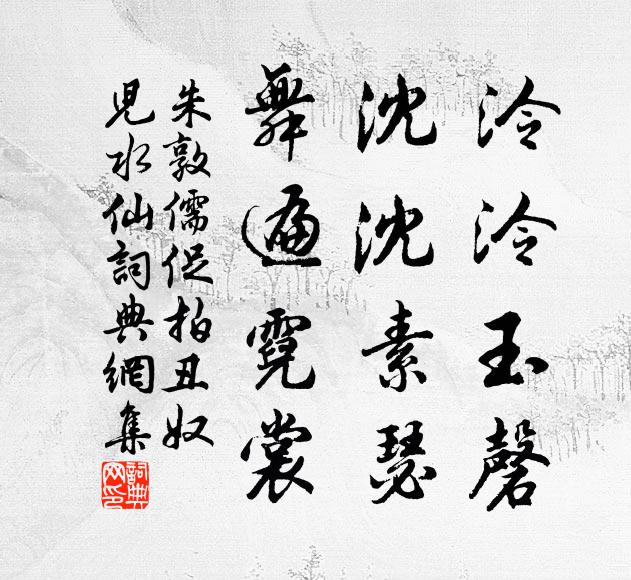 泠泠玉磬
沈沈素瑟
舞遍霓裳
朱敦儒促拍丑奴
児水仙詞典網集
詞典
网印